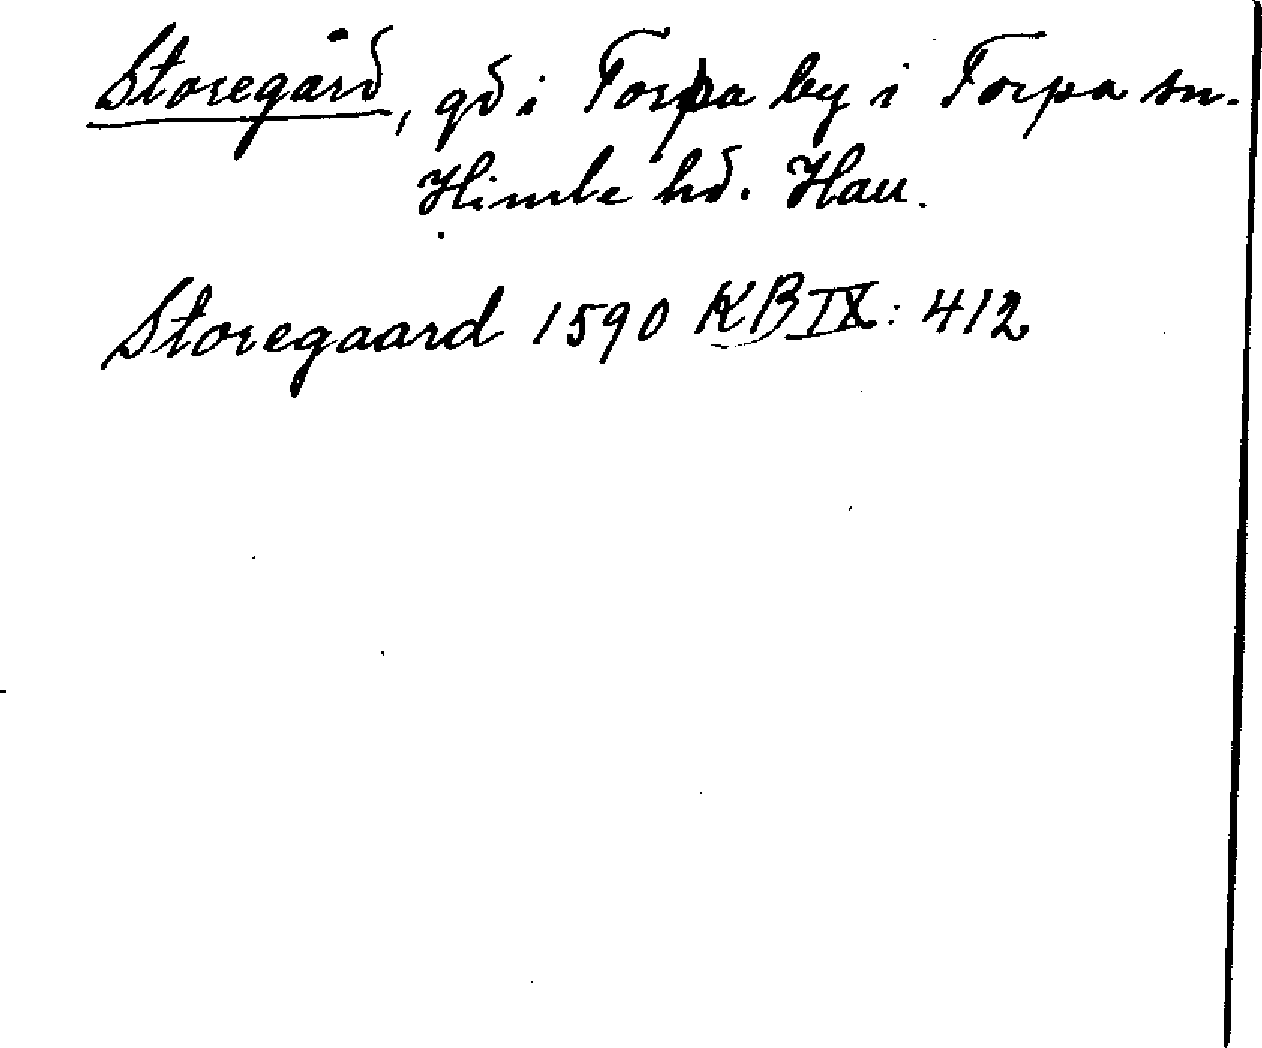 Storegård, gd i Torpa by i Torpa sn.
Himle hd. Hall.
Storegaard 1590 KB IX: 412